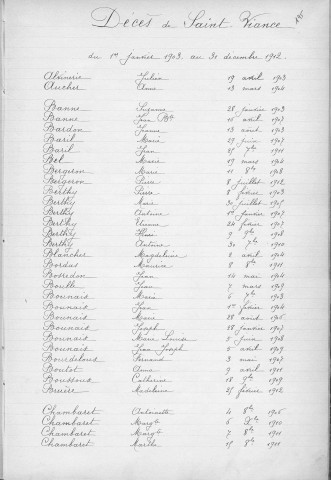 Décès de Saint Viance
du 1er janvier 1903 au 31 décembre 1912.
Julien 19 avril 1903
Aucher Anna 13 mars 1904
Banne Suzanne 28 janvier 1903
Banne Jean Bte avril 1907
Bardon Jeanne 13 août 1903
Baril Marie 29 juin 1907
Baril Jean 25 7bre 1911
Bel Marie 19 mars 1904
Bergeron Marie 11 8bre 1908
Bergeron Pierre 8 juillet 1912
Berthy Pierre 8 février 1903
Berthy Marie 30 juillet 1905
Berthy Antoine 1er janvier 1907
Berthy 24 février 1907
Berthy 9 9bre 1908
Berthy Antoine 31 7bre 1910
Blanchet Magdeleine 2 avril 1904
Bordas Maurice 2 8bre 1911
Bosredon Jean 14 mai 1904
Bouille Jean 7 mars 1909
Bounaix Marie 6 7bre 1903
Bounaix Jean 1er février 1904
Bounaix Marie 28 août 1905
Bounaix Joseph 28 janvier 1907
Bounaix Marie Louise 5 juin 1908
Bounaix Jean Joseph 5 avril 1909
Bourdeloux Fernand 3 mai 1907
Boutot Anna 9 avril 1911
Boussoux Catherine 18 9bre 1909
Bruère Madeleine 25 février 1912
Chambaret Antoinette 4 8bre 1905
Chambaret Margte 6 Xbre 1910
Chambaret Margte 7 8bre 1911
Chambaret Marthe 15 8bre 1911